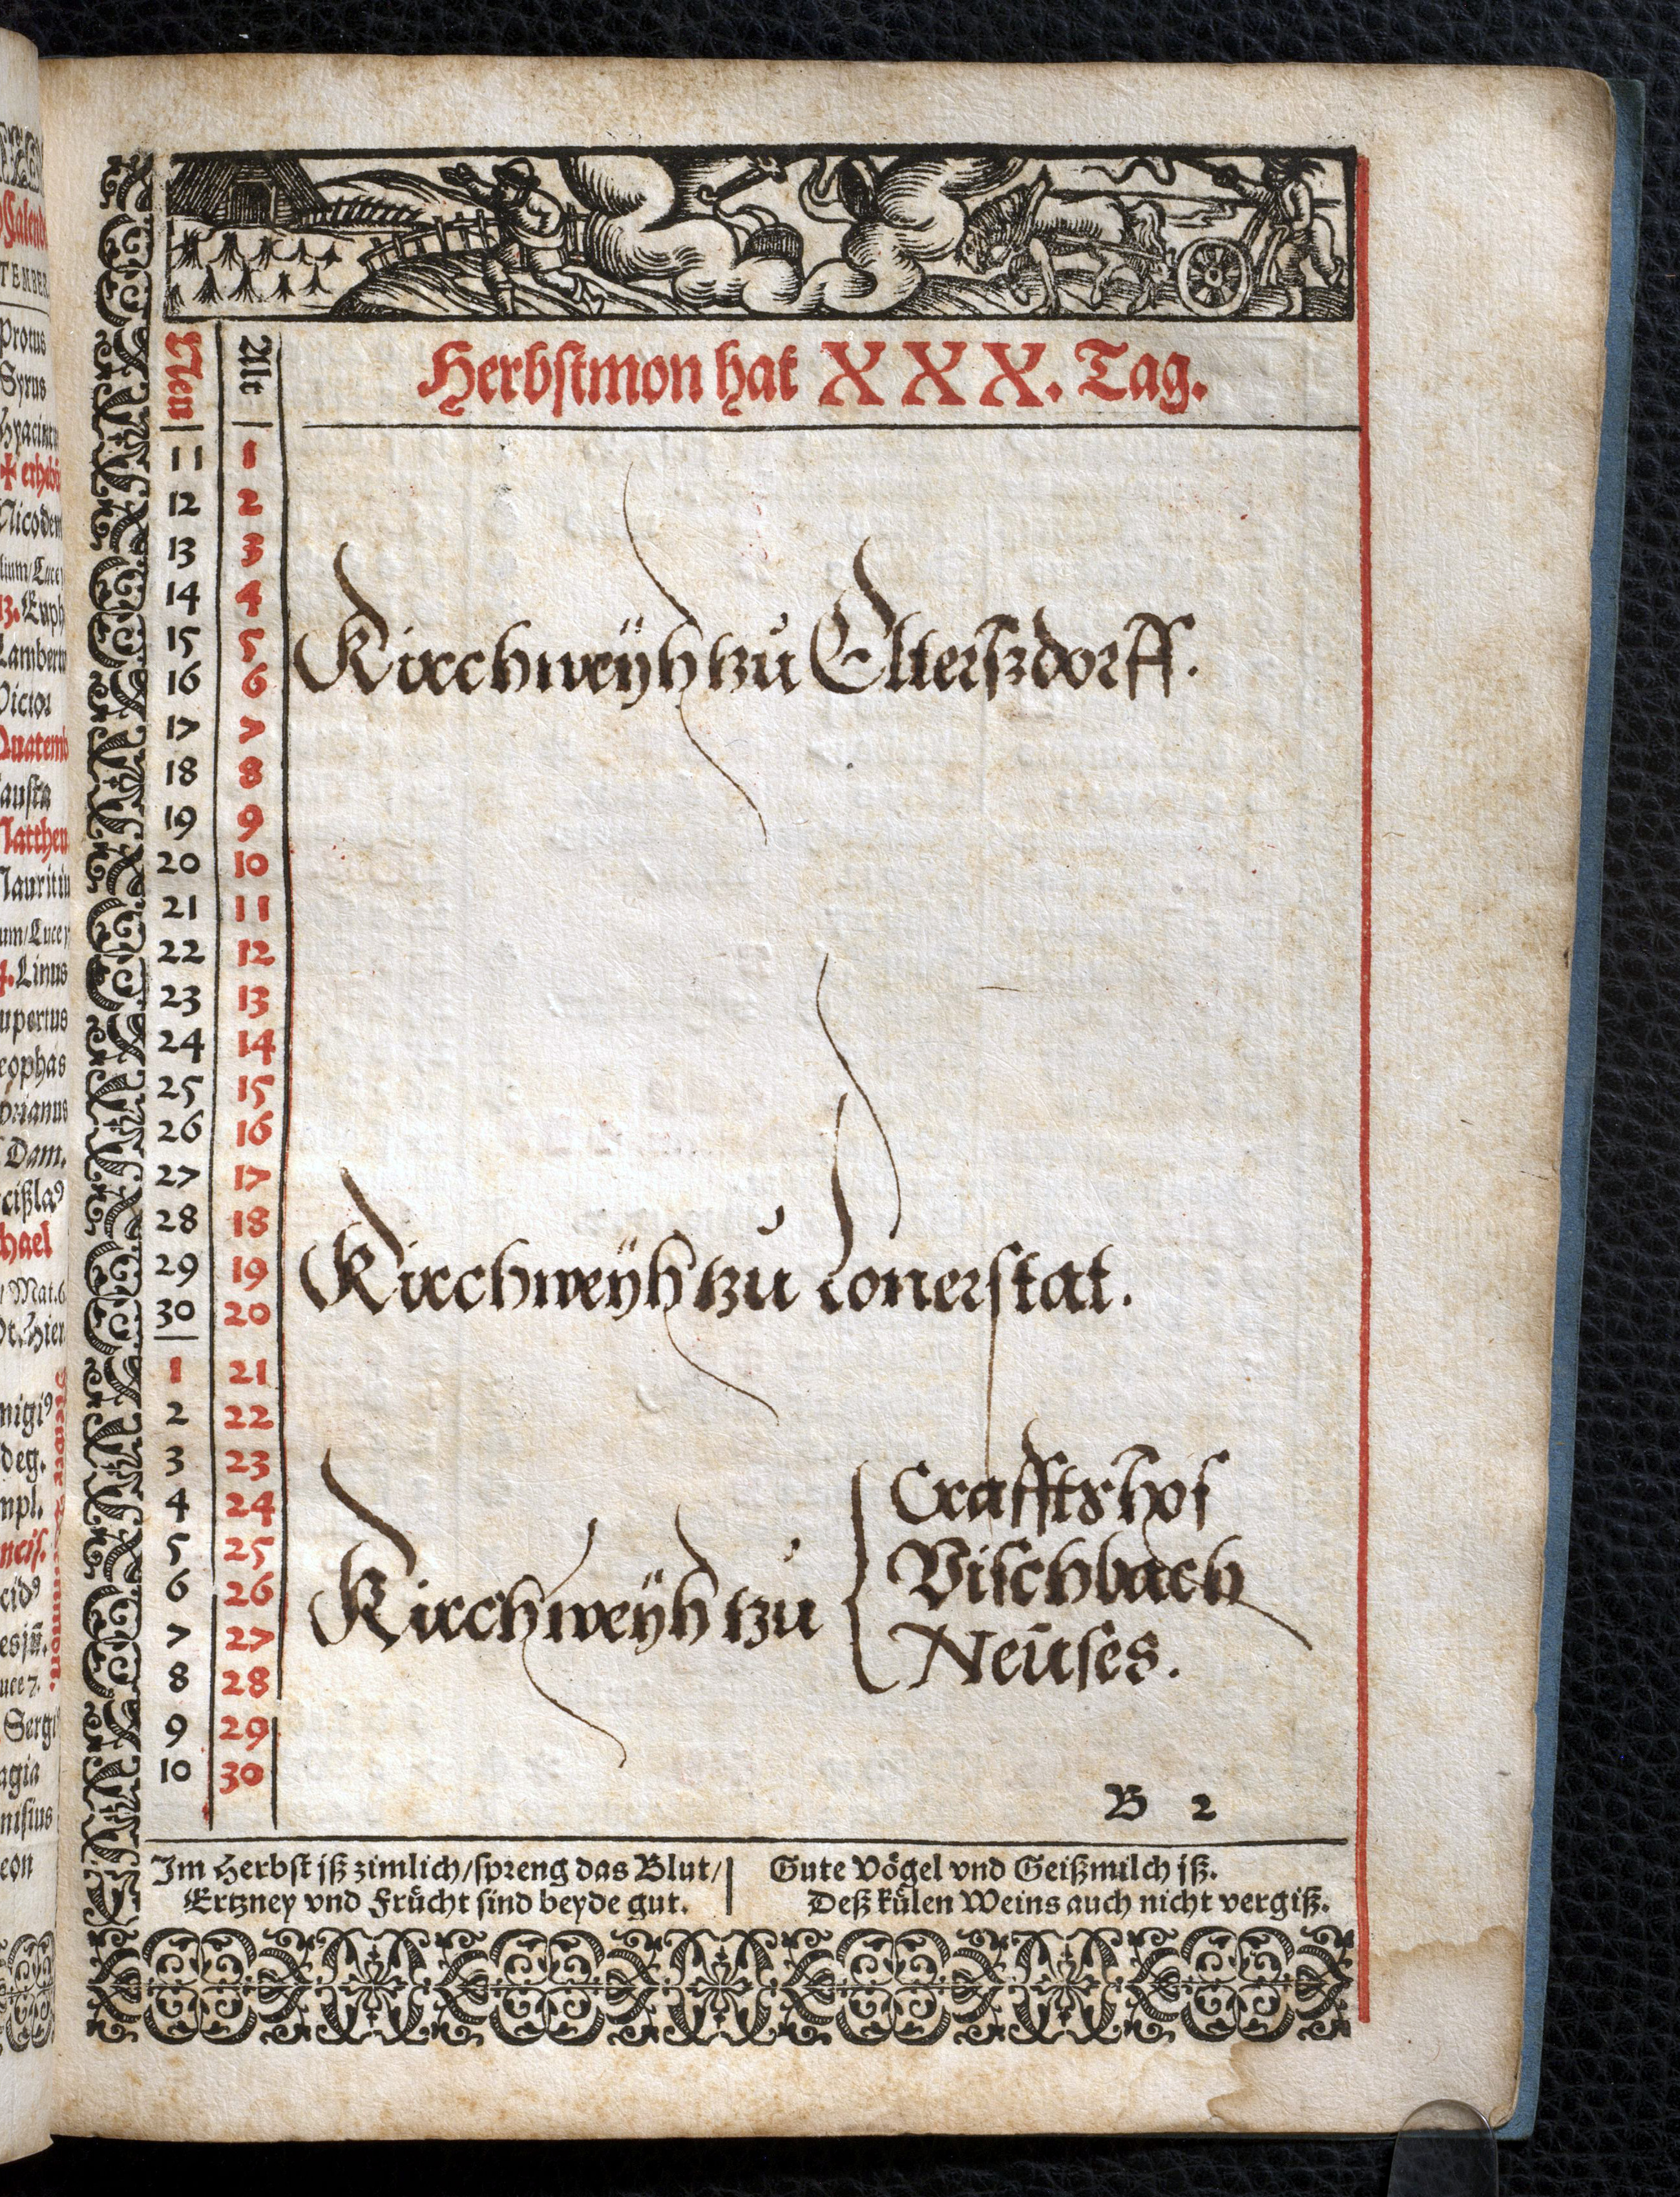 Calend
TEMBER
Protus
Syrus
✠ erhebũ
Lamberti
Victor
Quatemb
4. Linus
Dam.
hael
Neu
Alt
Herbstmon hat XXX. Tag.
11 1
12 2
13 3
14 4
15 5
Kirchweÿh tzu Elterszdorff.
16 6
17 7
18 8
19 9
20 10
21 11
22 12
23 13
24 14
25 15
26 16
27 17
28 18
29 19
Kirchweÿh tzu Lonerstat.
30 20
1 21
2 22
3 23
4 24
Craffts hof
5 25
6 26
Vischbach
Kirchweÿh tzu
7 27
Neuses.
8 28
9 29
10 30
B 2
Im Herbst iß zimlich/spreng das Blut/
Ertzney vnd Frücht sind beyde gut.
Gute Vögel vnd Geißmilch iß.
Deß külen Weins auch nicht vergiß.